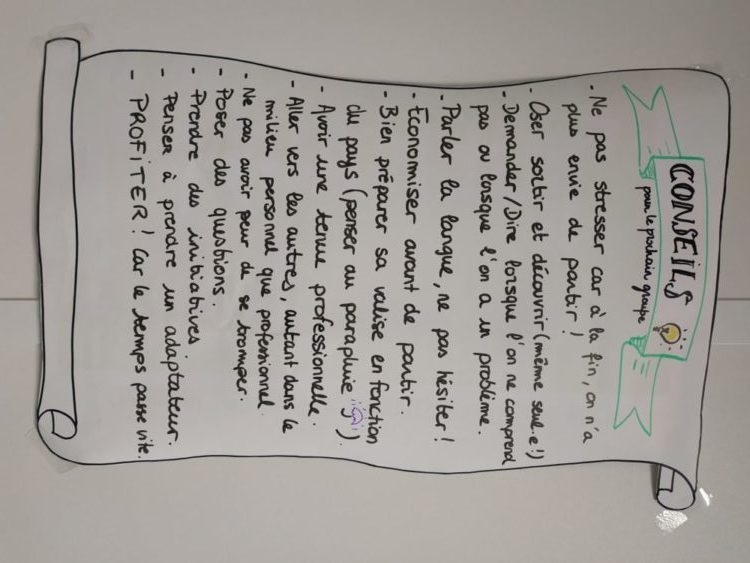 CONSEILS
pour le prochain groupe
- Ne pas stresser car à la fin, on n'a
plus envie de partir !
- Oser sortir et découvrir (même seul.e !)
- Demander / Dire lorsque l'on ne comprend
pas ou lorsque l'on a un problème.
- Parler la langue, ne pas hésiter !
- Économiser avant de partir.
- Bien préparer sa valise en fonction
du pays (penser au parapluie).
- Avoir une tenue professionnelle.
- Aller vers les autres, autant dans le
milieu personnel que professionnel
- Ne pas avoir peur de se tromper.
- Poser des questions.
- Prendre des initiatives
- Penser à prendre un adaptateur.
- PROFITER ! Car le temps passe vite.